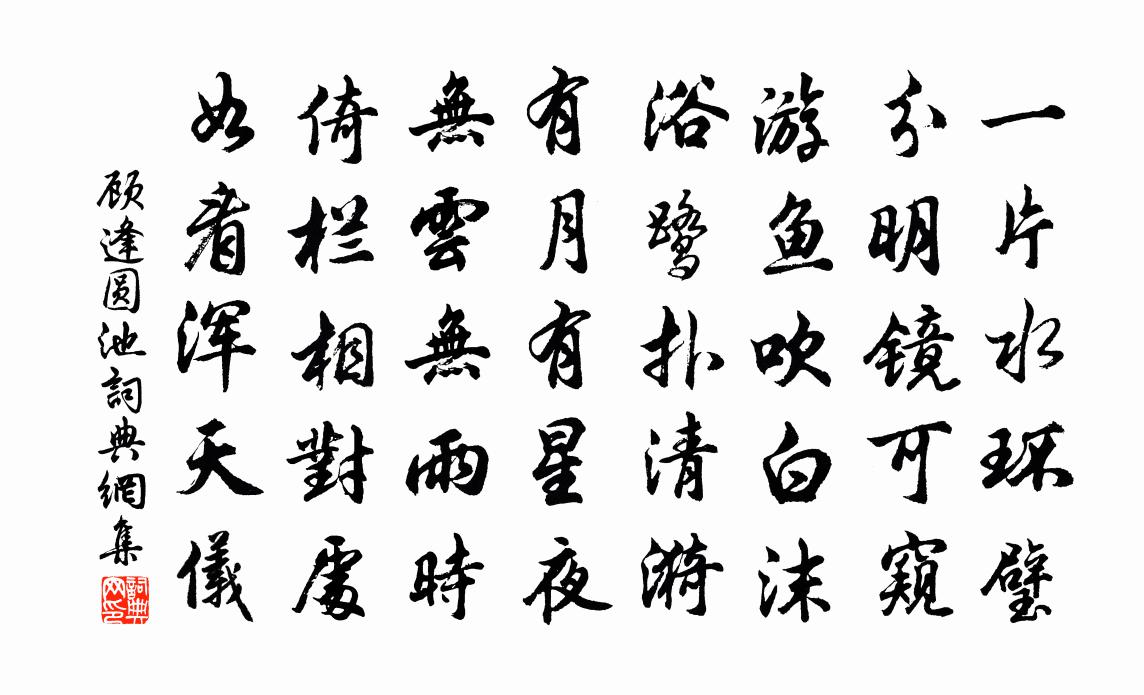 一片水环璧
分明镜可窥
游鱼吹白沫
浴鹭扑清漪
有月有星夜
無雲無雨時
倚栏相對處
如看浑天儀
顾逢圆池詞典網集
詞典网印